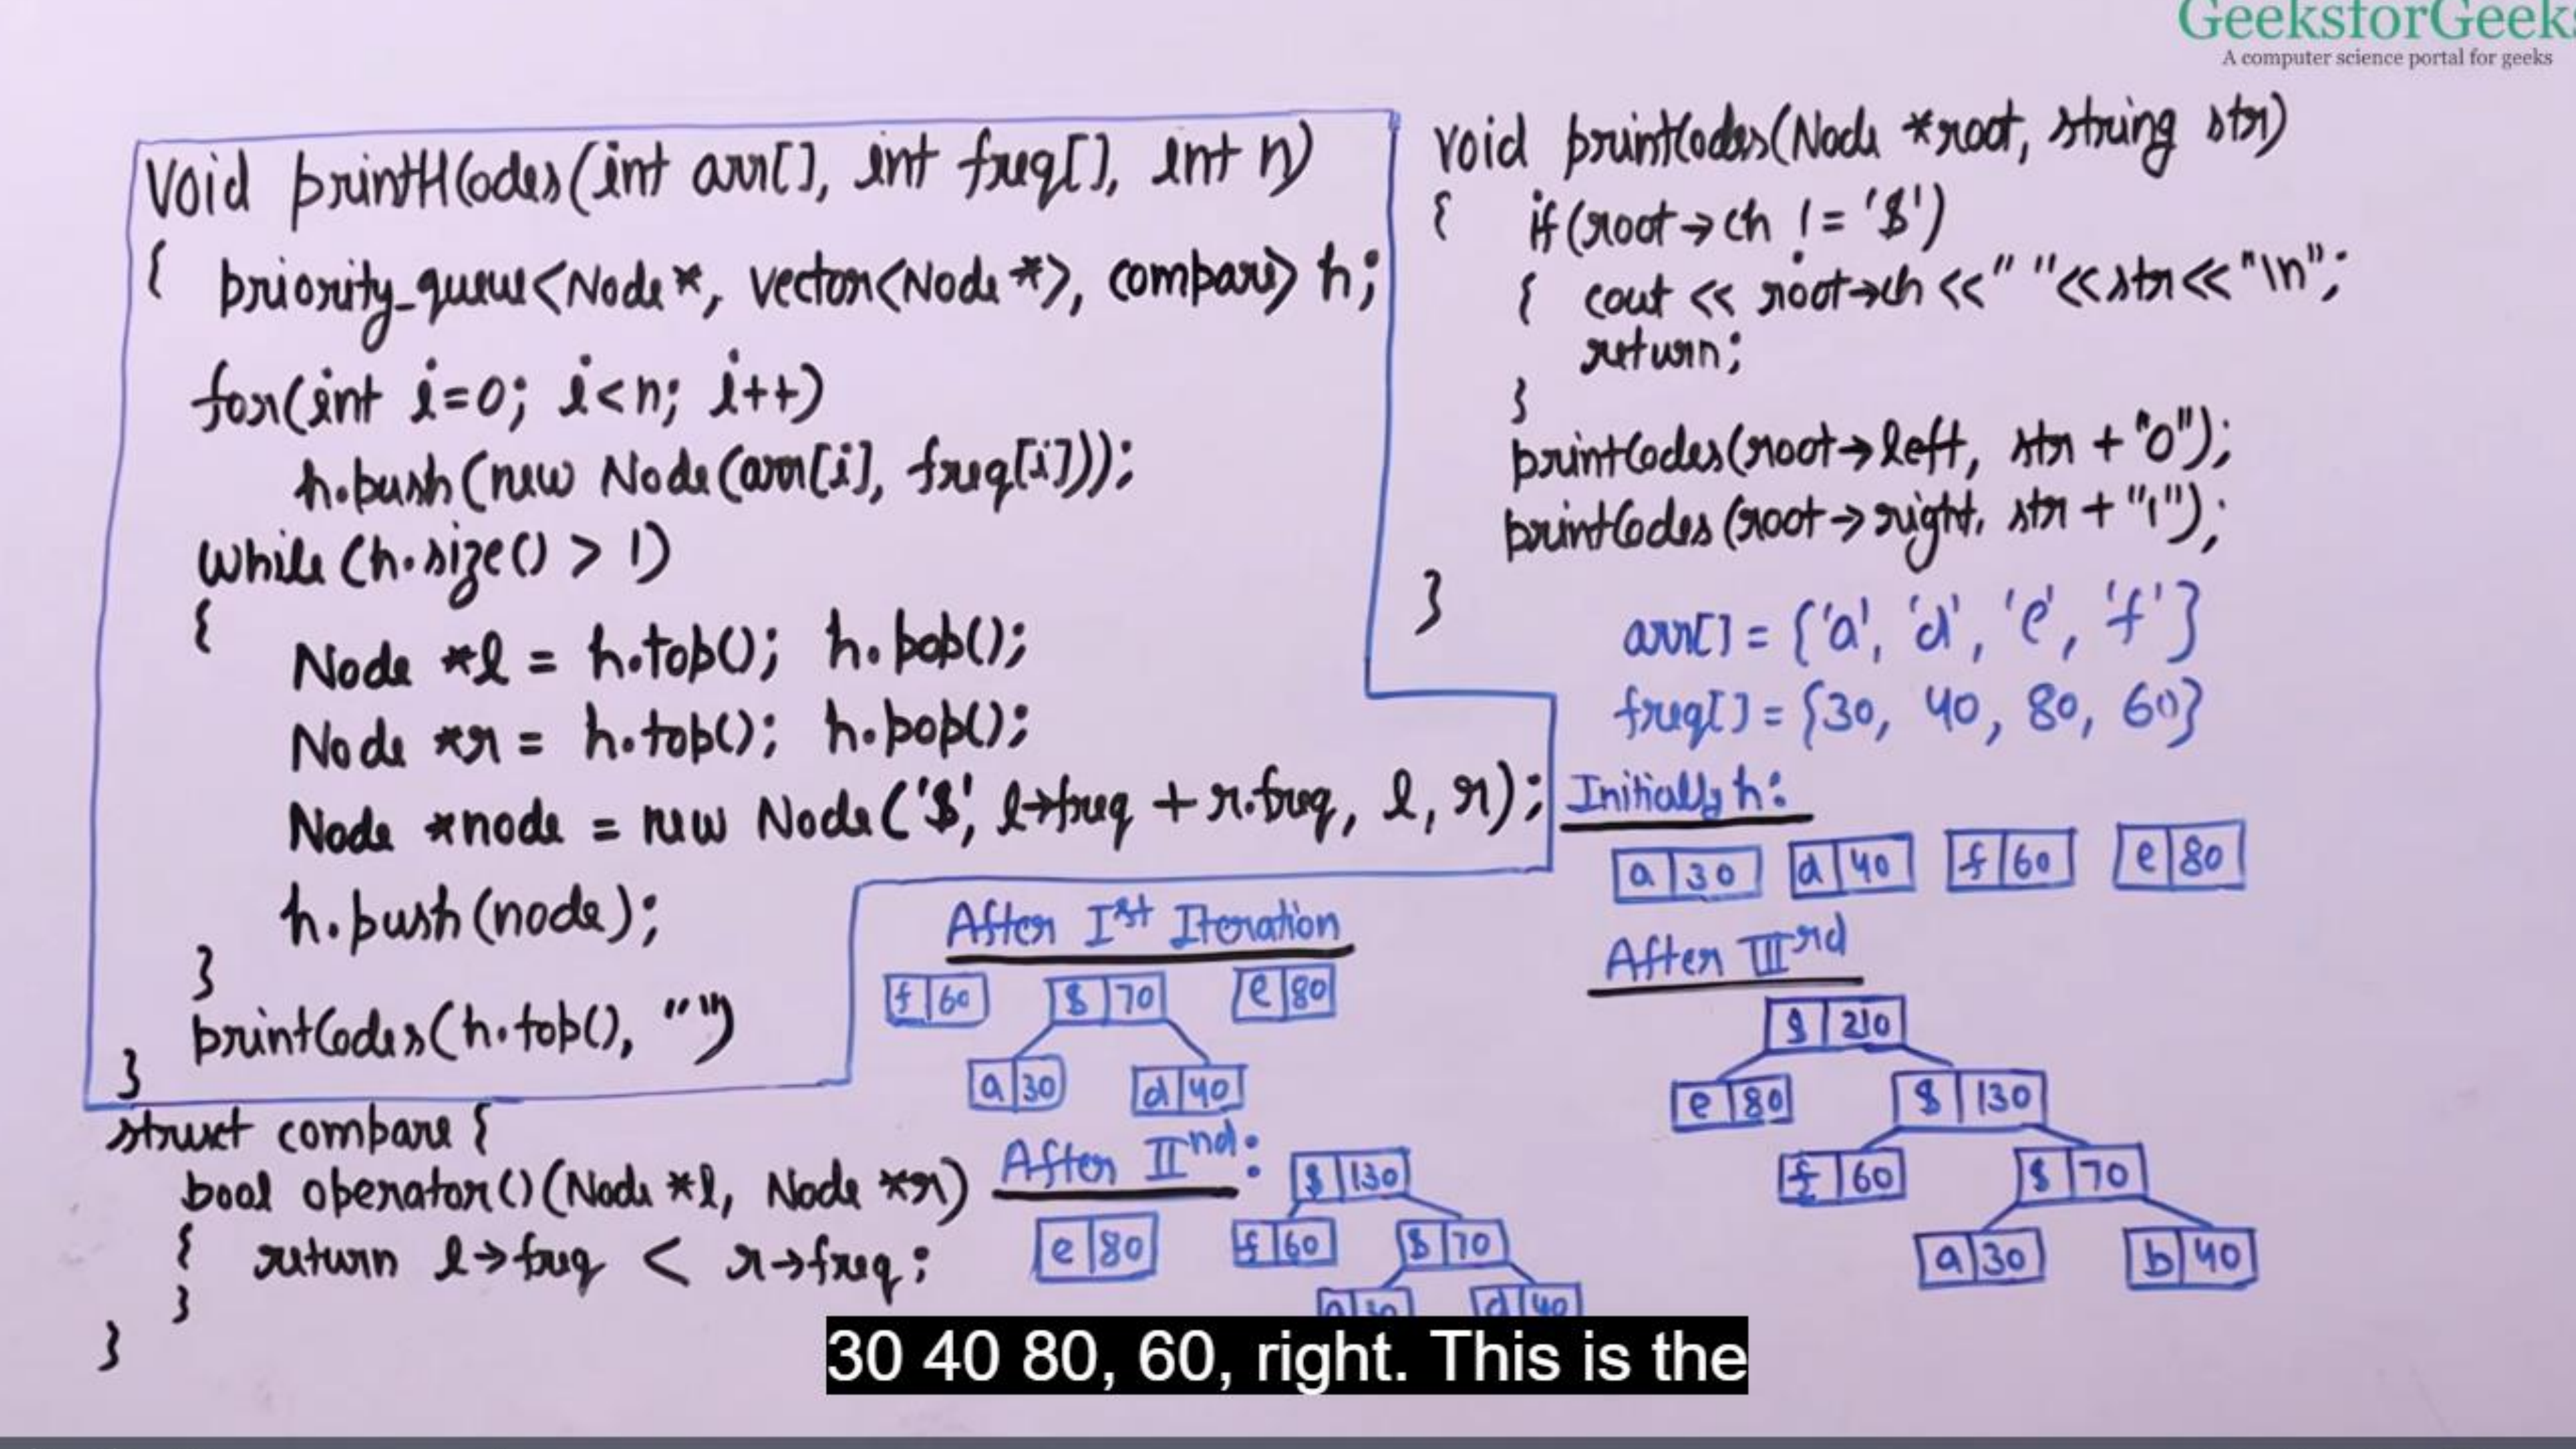 GeeksforGeeks
A computer science portal for geeks
void printHCodes(int arr[], int freq[], int n)
{ priority_queue<Node*, vector<Node*>, compare> h;
for(int i=0; i<n; i++)
h.push(new Node(arr[i], freq[i]));
while (h.size() > 1)
{
Node *l = h.top(); h.pop();
Node *r = h.top(); h.pop();
Node *node = new Node('$', l→freq + r.freq, l, r);
h.push(node);
}
printCodes(h.top(), "")
}
struct compare {
bool operator()(Node *l, Node *r)
{ return l→freq < r→freq;
}
}
void printCodes(Node *root, string str)
{ if(root→ch != '$')
{ cout << root→ch <<" "<<str<<"\n";
return;
}
printCodes(root→left, str + "0");
printCodes(root→right, str + "1");
}
arr[] = {'a', 'd', 'e', 'f'}
freq[] = {30, 40, 80, 60}
Initially h:
a 30 d 40 f 60 e 80
After Ist Iteration
f 60 $ 70 e 80
a 30 d 40
After IInd:
$ 130
e 80 f 60 $ 70
a 30 d 40
After IIIrd
$ 210
e 80 $ 130
f 60 $ 70
a 30 b 40
30 40 80, 60, right. This is the